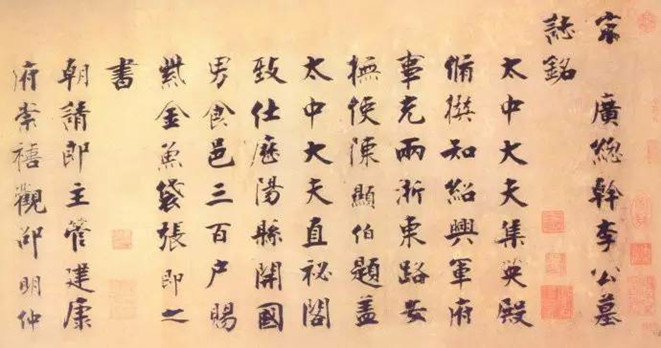 宋 廣總幹李公墓
誌銘
太中大夫集英殿
脩撰知紹興軍府
事充兩浙東路安
撫使陳顯伯題盖
太中大夫直祕閣
致仕歷陽縣開國
男食邑三百户賜
紫金魚袋張即之
書
朝請郎主管建康
府崇禧觀邵明仲